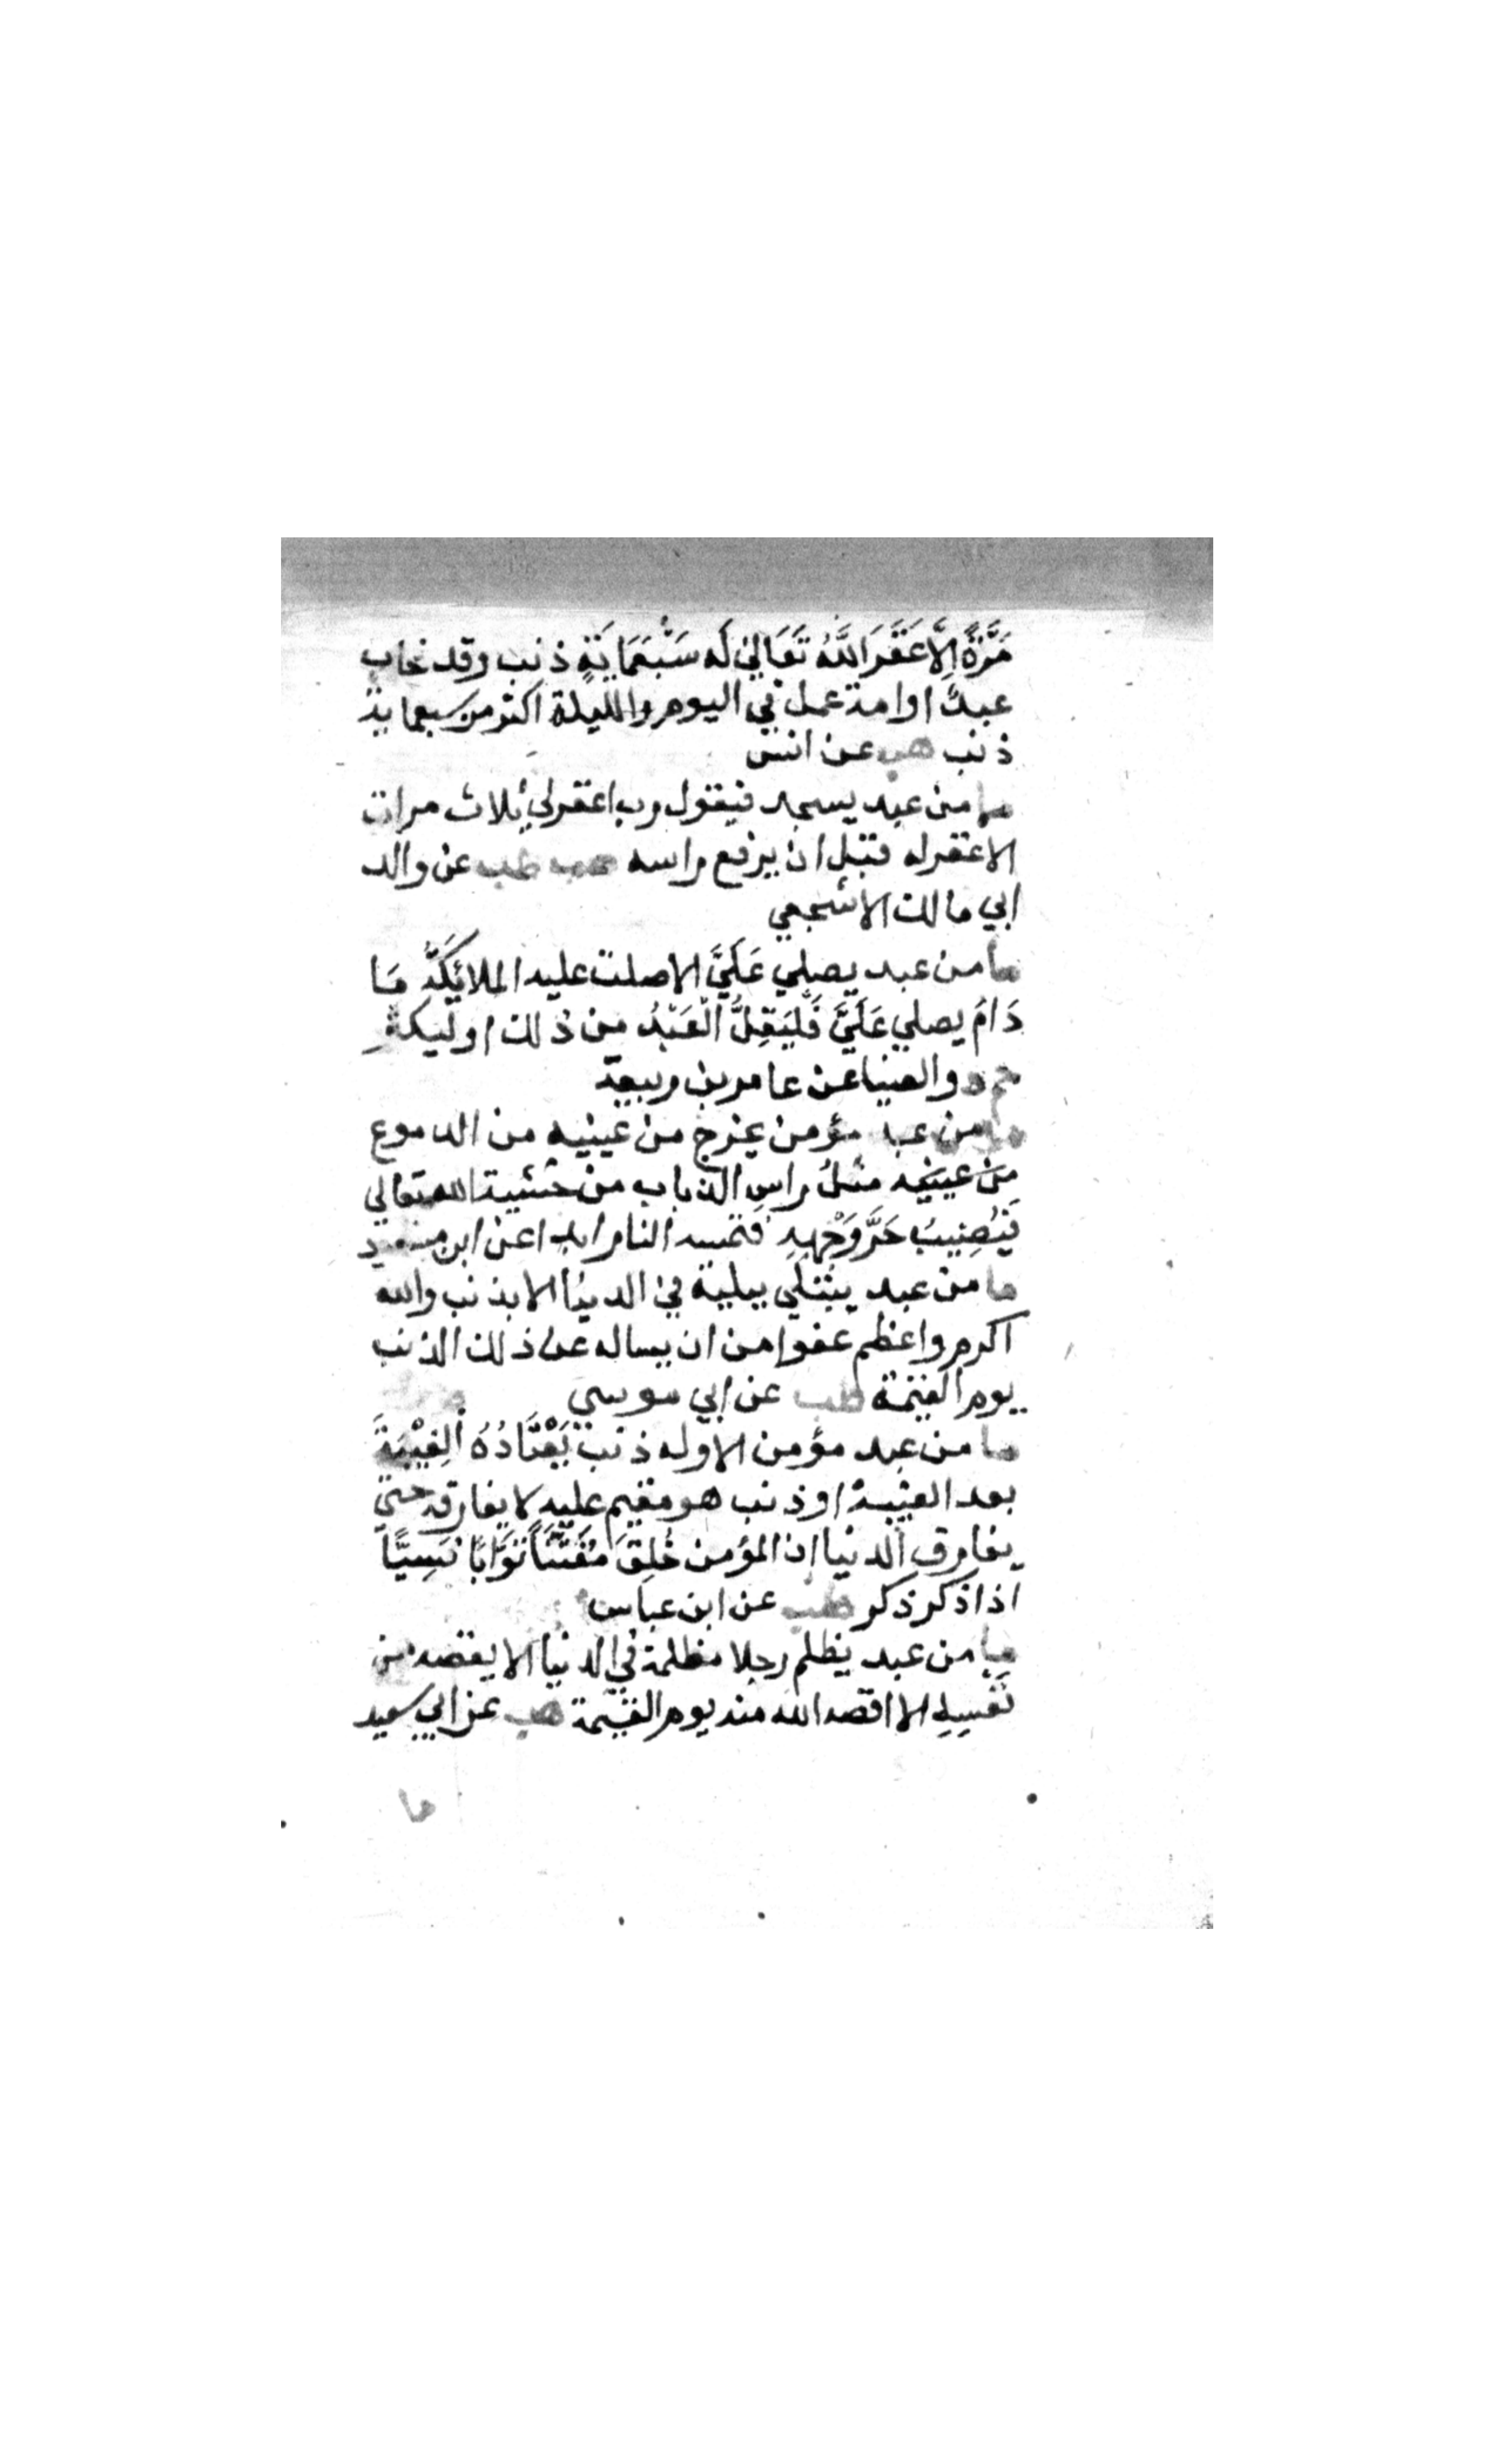 مَرَّةً اِلَّا غَفَرَ اللَّهُ تَعَالَي لَه سَبْعَمَايَةِ ذنب وقد خاب
عبدٌ او امة عمل في اليوم والليلة اكثر من سبعماية
ذنب هب عن انس
ما من عبد يسجد فيقول رب اغفرلي ثلاث مرات
الا غفرله قبل ان يرفع راسه طب عن والد
ابي مالك الاشجعي
ما من عبد يصلي عَلَيَّ الا صلت عليه الملائِكَةُ مَا
دَامَ يصلي عَلَيَّ فَلْيَقِلَّ الْعَبْدُ من ذلك او ليكثر
حم ه والضيا عن عامر بن ربيعة
ما من عبد مؤمن يخرج من عينيه من الدموع
من عينيه مثلُ راسِ الذباب من خشية الله تعالي
فَيُصِيبُ حَرَّ وَجْهِهِ فتمسه النار ابدا عن ابن مسعود
ما من عبد يبتلي ببلية في الدنيا الا بذنب والله
اكرم واعظم عفوا من ان يساله عن ذلك الذنب
يوم القيمة طب عن ابي موسي
ما من عبد مؤمن الا وله ذنب يَعْتَادُهُ الفَيْنَةَ
بعد الفينة او ذنب هو مقيم عليه لا يفارقه حتي
يفارق الدنيا ان المؤمن خُلِقَ مُفَتَّنًا تَوَّابًا نَسِيًّا
اذا ذكر ذكر طب عن ابن عباس
ما من عبد يظلم رجلا مظلمة في الدنيا لا يقصه من
نَفْسِهِ الا اقصه الله منه يوم القيمة هب عن ابي سعيد
ما